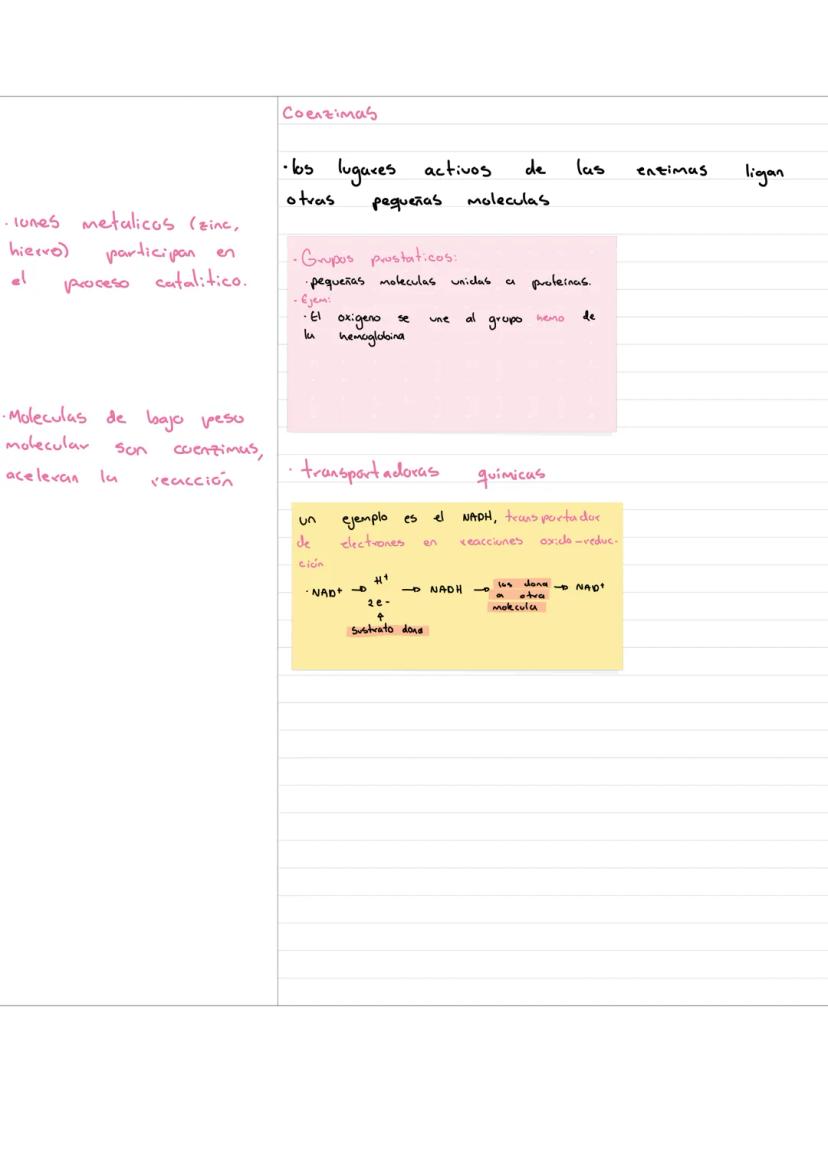 Coenzimas
· los lugares activos de las enzimas ligan
otras pequeñas moleculas
· iones metalicos (zinc,
hierro) participan en
el proceso catalitico.
· Grupos prostaticos:
· pequeñas moleculas unidas a proteínas.
· Ejem:
· El oxigeno se une al grupo hemo de
la hemoglobina
· Moleculas de bajo peso
molecular son coenzimas,
aceleran la reacción
· transportadoras químicas
un ejemplo es el NADH, transportador
de electrones en reacciones oxido-reduc-
ción
· NAD+ → H+ → NADH → los dona → NAD+
2e- a otra
↑ molecula
Sustrato dona